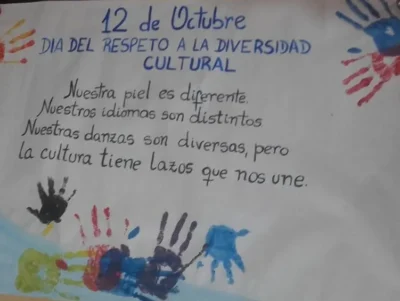 12 de Octubre
DIA DEL RESPETO A LA DIVERSIDAD
CULTURAL
Nuestra piel es diferente.
Nuestros idiomas son distintos
Nuestras danzas son diversas, pero
la cultura tiene lazos que nos une.